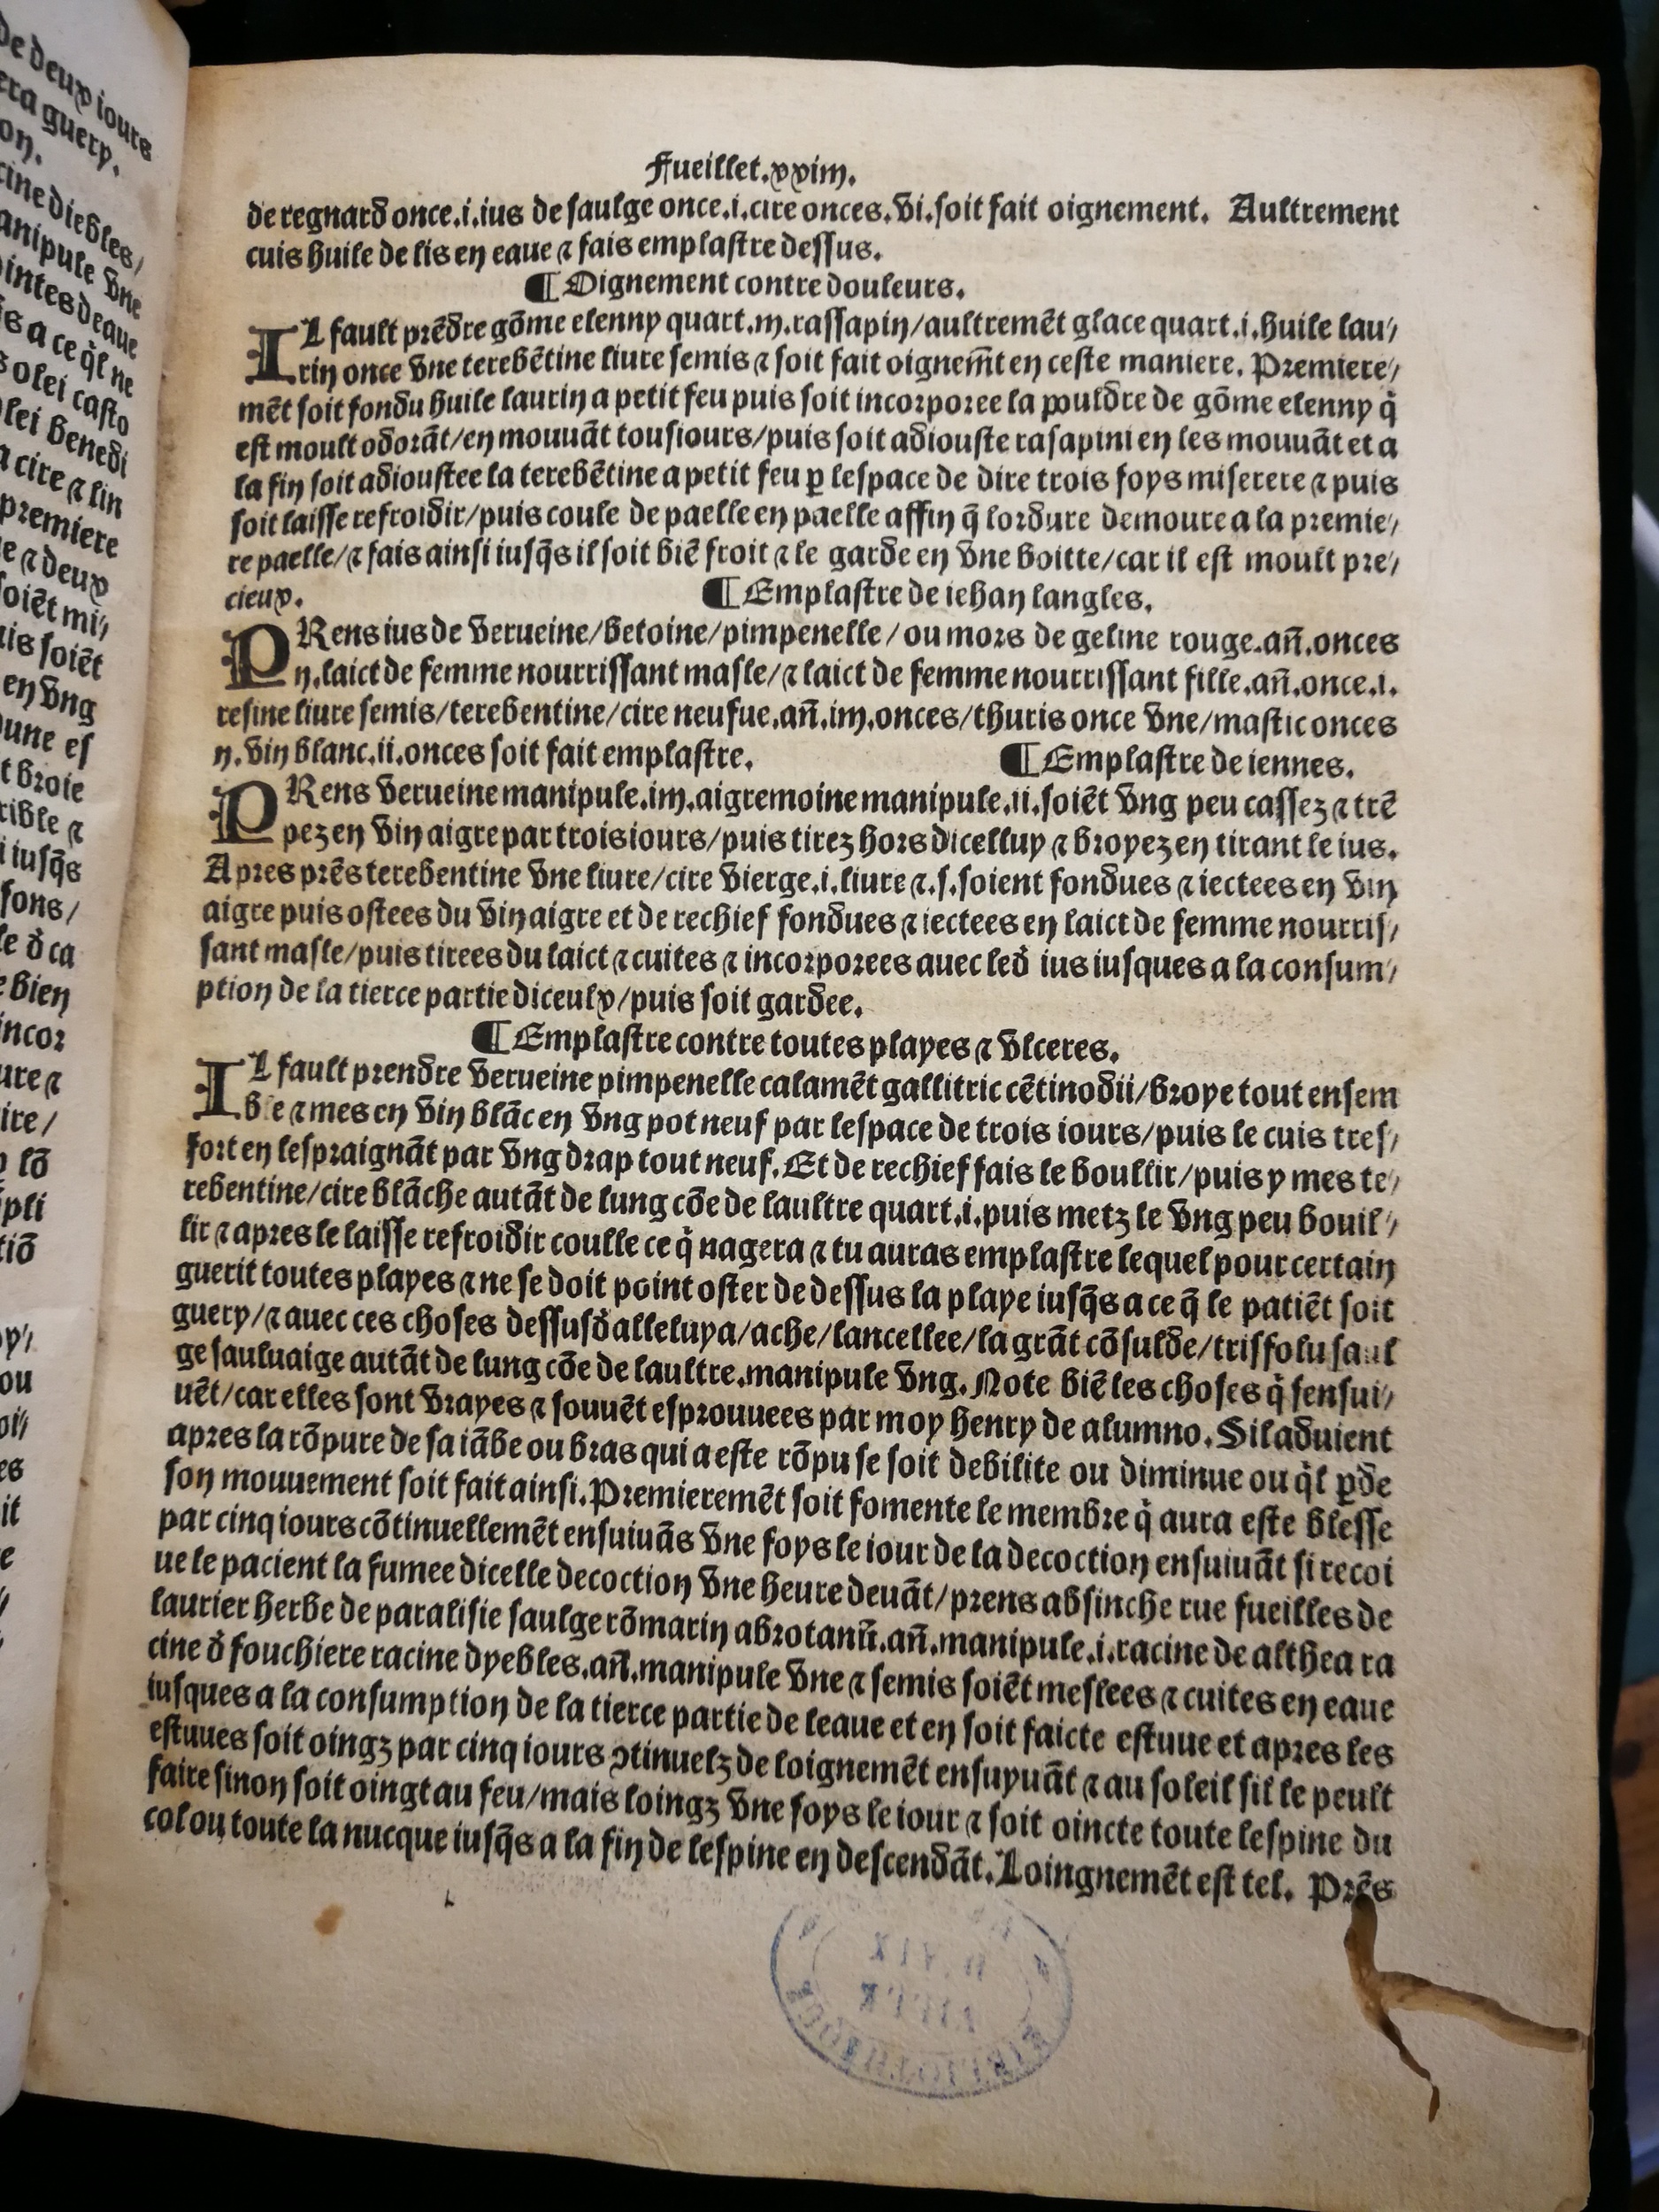 de deux iours
era guery.
on.
cine diebles/
anipule vne
intes deaue
s a ce q̃l ne
s olei casto
lei benedi
a cire ⁊ lin
premiere
e ⁊ deux
soiēt mi⸗
uis soiēt
en vng
une es
t broie
rible ⁊
i iusq̄s
sons/
le d̄ ca
e bien
incor
ure ⁊
ire/
lō
pli
tiō
ou
es
it
e
Fueillet.xxiiij.
de regnard once.i.ius de saulge once.i.cire onces.vi.soit fait oignement. Aultrement
cuis huile de lis en eaue ⁊ fais emplastre dessus.
¶Oignement contre douleurs.
IL fault prēdre gōme elenny quart.iij.rassapin/aultremēt glace quart.i.huile lau⸗
rin once vne terebētine liure semis ⁊ soit fait oignem̄t en ceste maniere. Premiere⸗
mēt soit fondu huile laurin a petit feu puis soit incorporee la pouldre de gōme elenny q̇
est moult odorāt/en mouuāt tousiours/puis soit adiouste rasapini en les mouuāt et a
la fin soit adioustee la terebētine a petit feu ꝑ lespace de dire trois foys miserere ⁊ puis
soit laisse refroidir/puis coule de paelle en paelle affin q̄ lordure demoure a la premie⸗
re paelle/⁊ fais ainsi iusq̄s il soit biē froit ⁊ le garde en vne boitte/car il est moult pre⸗
cieux. ¶Emplastre de iehan langles.
PRens ius de verueine/betoine/pimpenelle/ou mors de geline rouge.an̄.onces
ij.laict de femme nourrissant masle/⁊ laict de femme nourrissant fille.an̄.once.i.
resine liure semis/terebentine/cire neufue.an̄.iiij.onces/thuris once vne/mastic onces
ij.vin blanc.ii.onces soit fait emplastre. ¶Emplastre de iennes.
PRens verueine manipule.iiij.aigremoine manipule.ii.soiēt vng peu cassez ⁊ trē
pez en vin aigre par trois iours/puis tirez hors dicelluy ⁊ broyez en tirant le ius.
Apres prēs terebentine vne liure/cire vierge.i.liure ⁊.s.soient fondues ⁊ iectees en vin
aigre puis ostees du vin aigre et de rechief fondues ⁊ iectees en laict de femme nourris⸗
sant masle/puis tirees du laict ⁊ cuites ⁊ incorporees auec led̄ ius iusques a la consum⸗
ption de la tierce partie diceulx/puis soit gardee.
¶Emplastre contre toutes playes ⁊ vlceres.
IL fault prendre verueine pimpenelle calamēt gallitric cētinodii/broye tout ensem
ble ⁊ mes en vin blāc en vng pot neuf par lespace de trois iours/puis le cuis tres⸗
fort en lespraignāt par vng drap tout neuf. Et de rechief fais le boullir/puis y mes te⸗
rebentine/cire blāche autāt de lung cōe de laultre quart.i.puis metz le vng peu bouil⸗
lir ⁊ apres le laisse refroidir coulle ce q̇ nagera ⁊ tu auras emplastre lequel pour certain
guerit toutes playes ⁊ ne se doit point oster de dessus la playe iusq̄s a ce q̄ le patiēt soit
guery/⁊ auec ces choses dessusd̄ alleluya/ache/lancellee/la grāt cōsulde/triffolu saul
ge sauluaige autāt de lung cōe de laultre.manipule vng. Note biē les choses q̇ sensui⸗
uēt/car elles sont vrayes ⁊ souuēt esprouuees par moy henry de alumno. Sil aduient
apres la rōpure de sa iābe ou bras qui a este rōpu se soit debilite ou diminue ou q̇l ꝑde
son mouuement soit fait ainsi. Premieremēt soit fomente le membre q̇ aura este blesse
par cinq iours cōtinuellemēt ensuiuās vne foys le iour de la decoction ensuiuāt si recoi
ue le pacient la fumee dicelle decoction vne heure deuāt/prens absinche rue fueilles de
laurier herbe de paralisie saulge rōmarin abrotanū.an̄.manipule.i.racine de althea ra
cine d̄ fouchiere racine dyebles.an̄.manipule vne ⁊ semis soiēt meslees ⁊ cuites en eaue
iusques a la consumption de la tierce partie de leaue et en soit faicte estuue et apres les
estuues soit oingz par cinq iours ↄtinuelz de loignemēt ensuyuāt ⁊ au soleil sil le peult
faire sinon soit oingt au feu/mais loingz vne foys le iour ⁊ soit oincte toute lespine du
col ou toute la nucque iusq̄s a la fin de lespine en descendāt. Loingnemēt est tel. Prēs